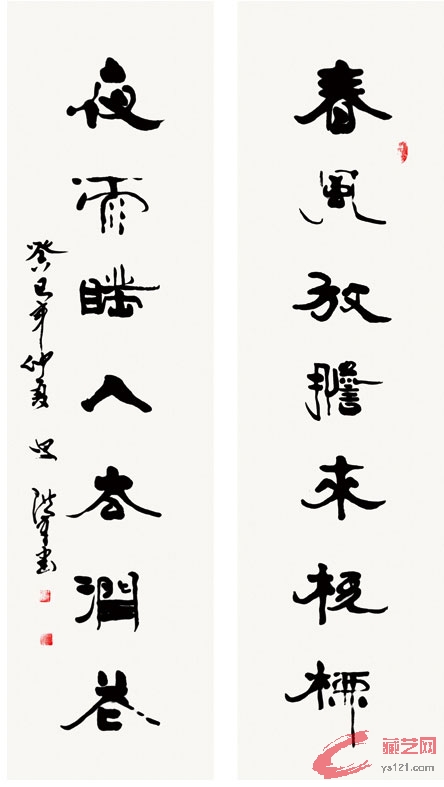 春風放膽來梳柳
夜雨瞞人去潤花
癸巳年仲夏 書
藏艺网
ys121.com